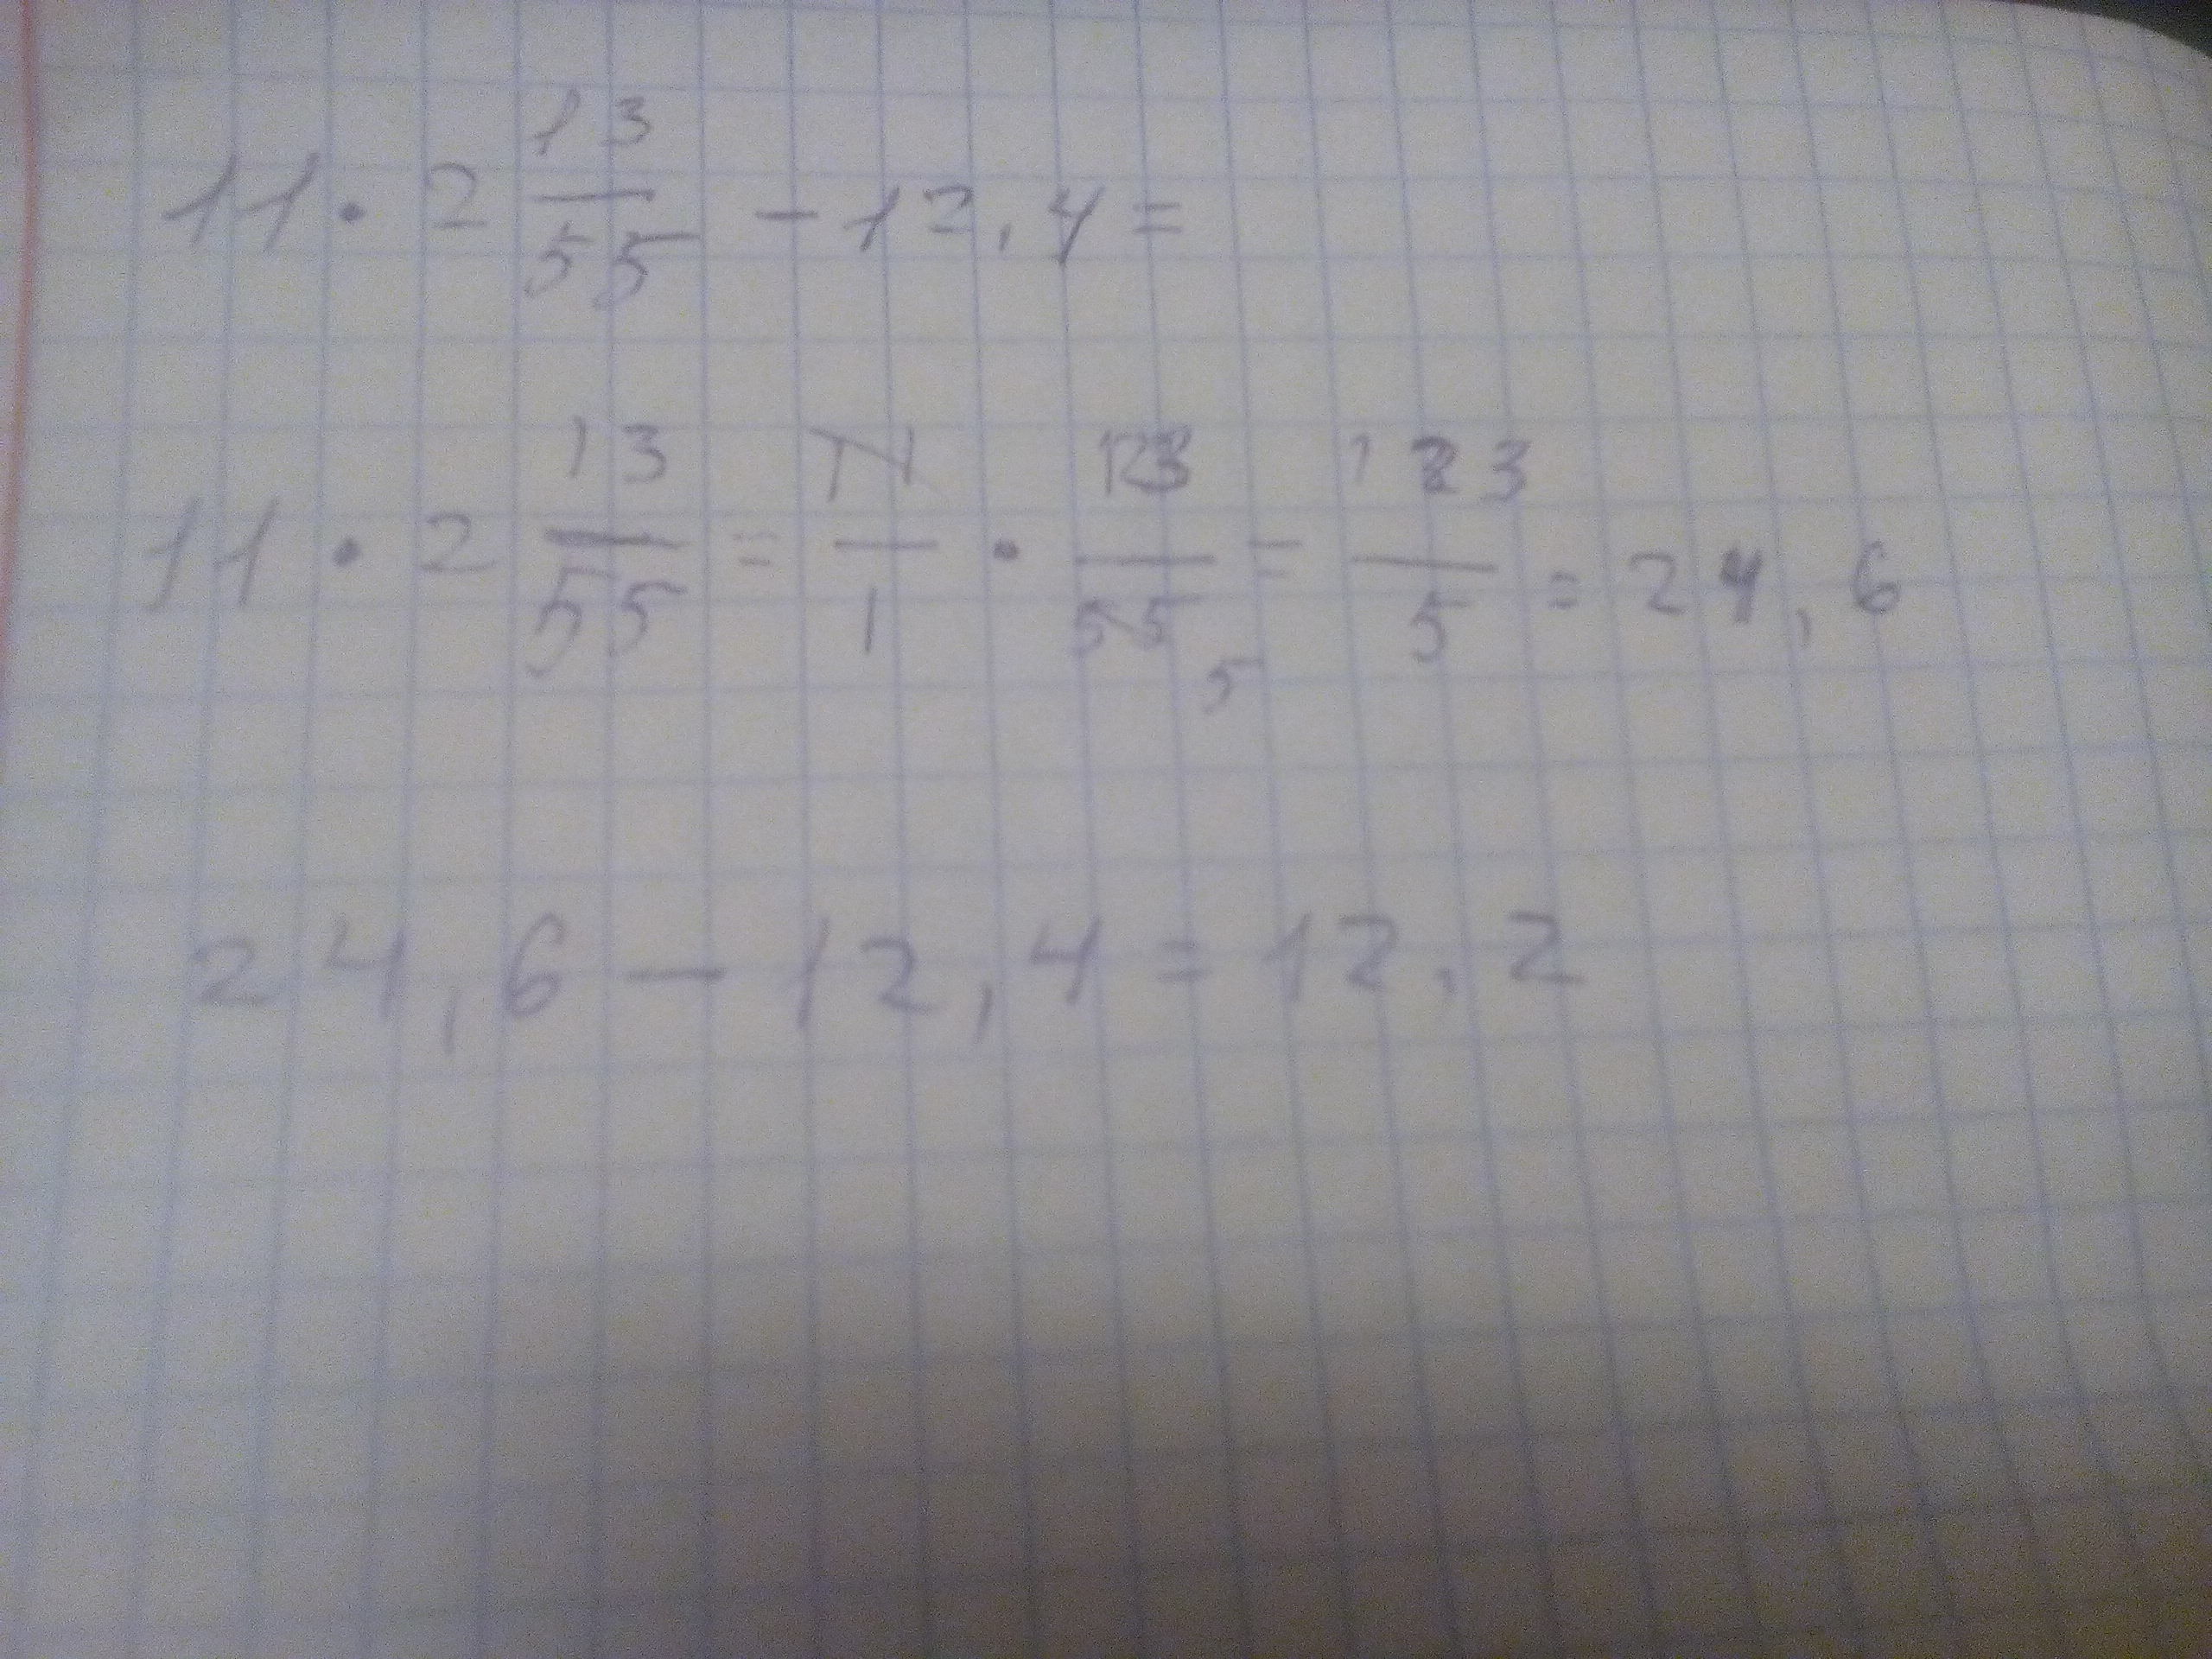 11 · 2 13/55 - 12,4 =
11 · 2 13/55 = 11/1 · 123/55 5 = 123/5 = 24,6
24,6 - 12,4 = 12.2